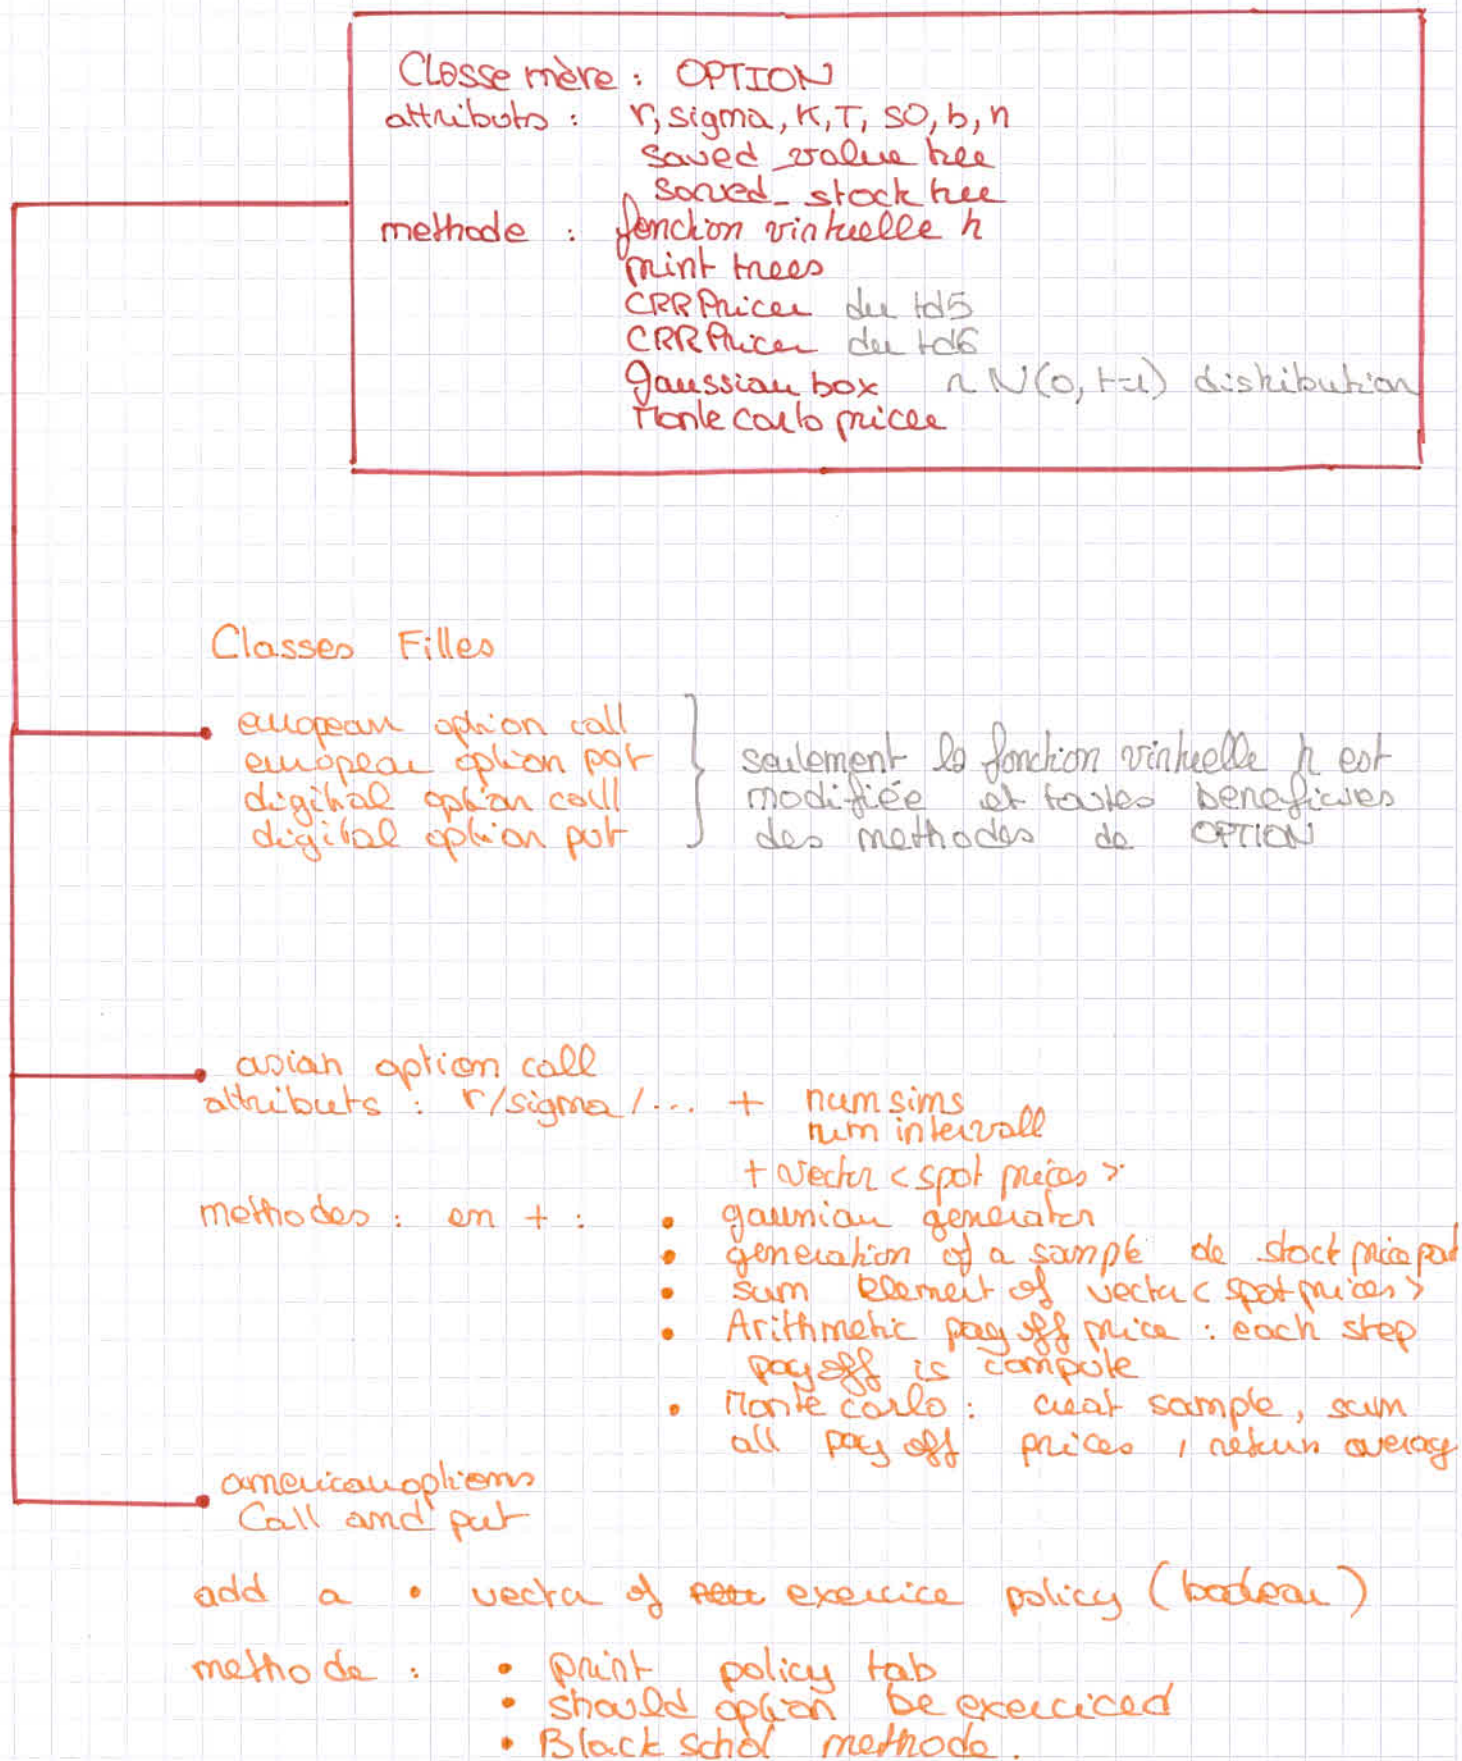 Classe mère : OPTION
attributs : r, sigma, K, T, S0, b, n
saved_value tree
saved_stock tree
methode : fonction virtuelle h
print trees
CRR Pricer du td5
CRR Pricer du td6
gaussian box ~ N(0, t=1) distribution
Monte carlo pricer
Classes Filles
european option call
european option put
digital option call
digital option put
seulement la fonction virtuelle h est
modifiée et toutes benefices
des methodes de OPTION
asian option call
attributs : r/sigma/... + num sims
num intervall
+ vector <spot prices>
methodes : en + : • gaussian generator
• generation of a sample de stock price pat
• sum element of vector <spot prices>
• Arithmetic pay off price : each step
pay off is compute
• Monte carlo : creat sample, sum
all pay off prices, return averag
american options
Call and put
add a • vector of exercice policy (boolean)
methode : • print policy tab
• should option be exerciced
• Black schol methode.